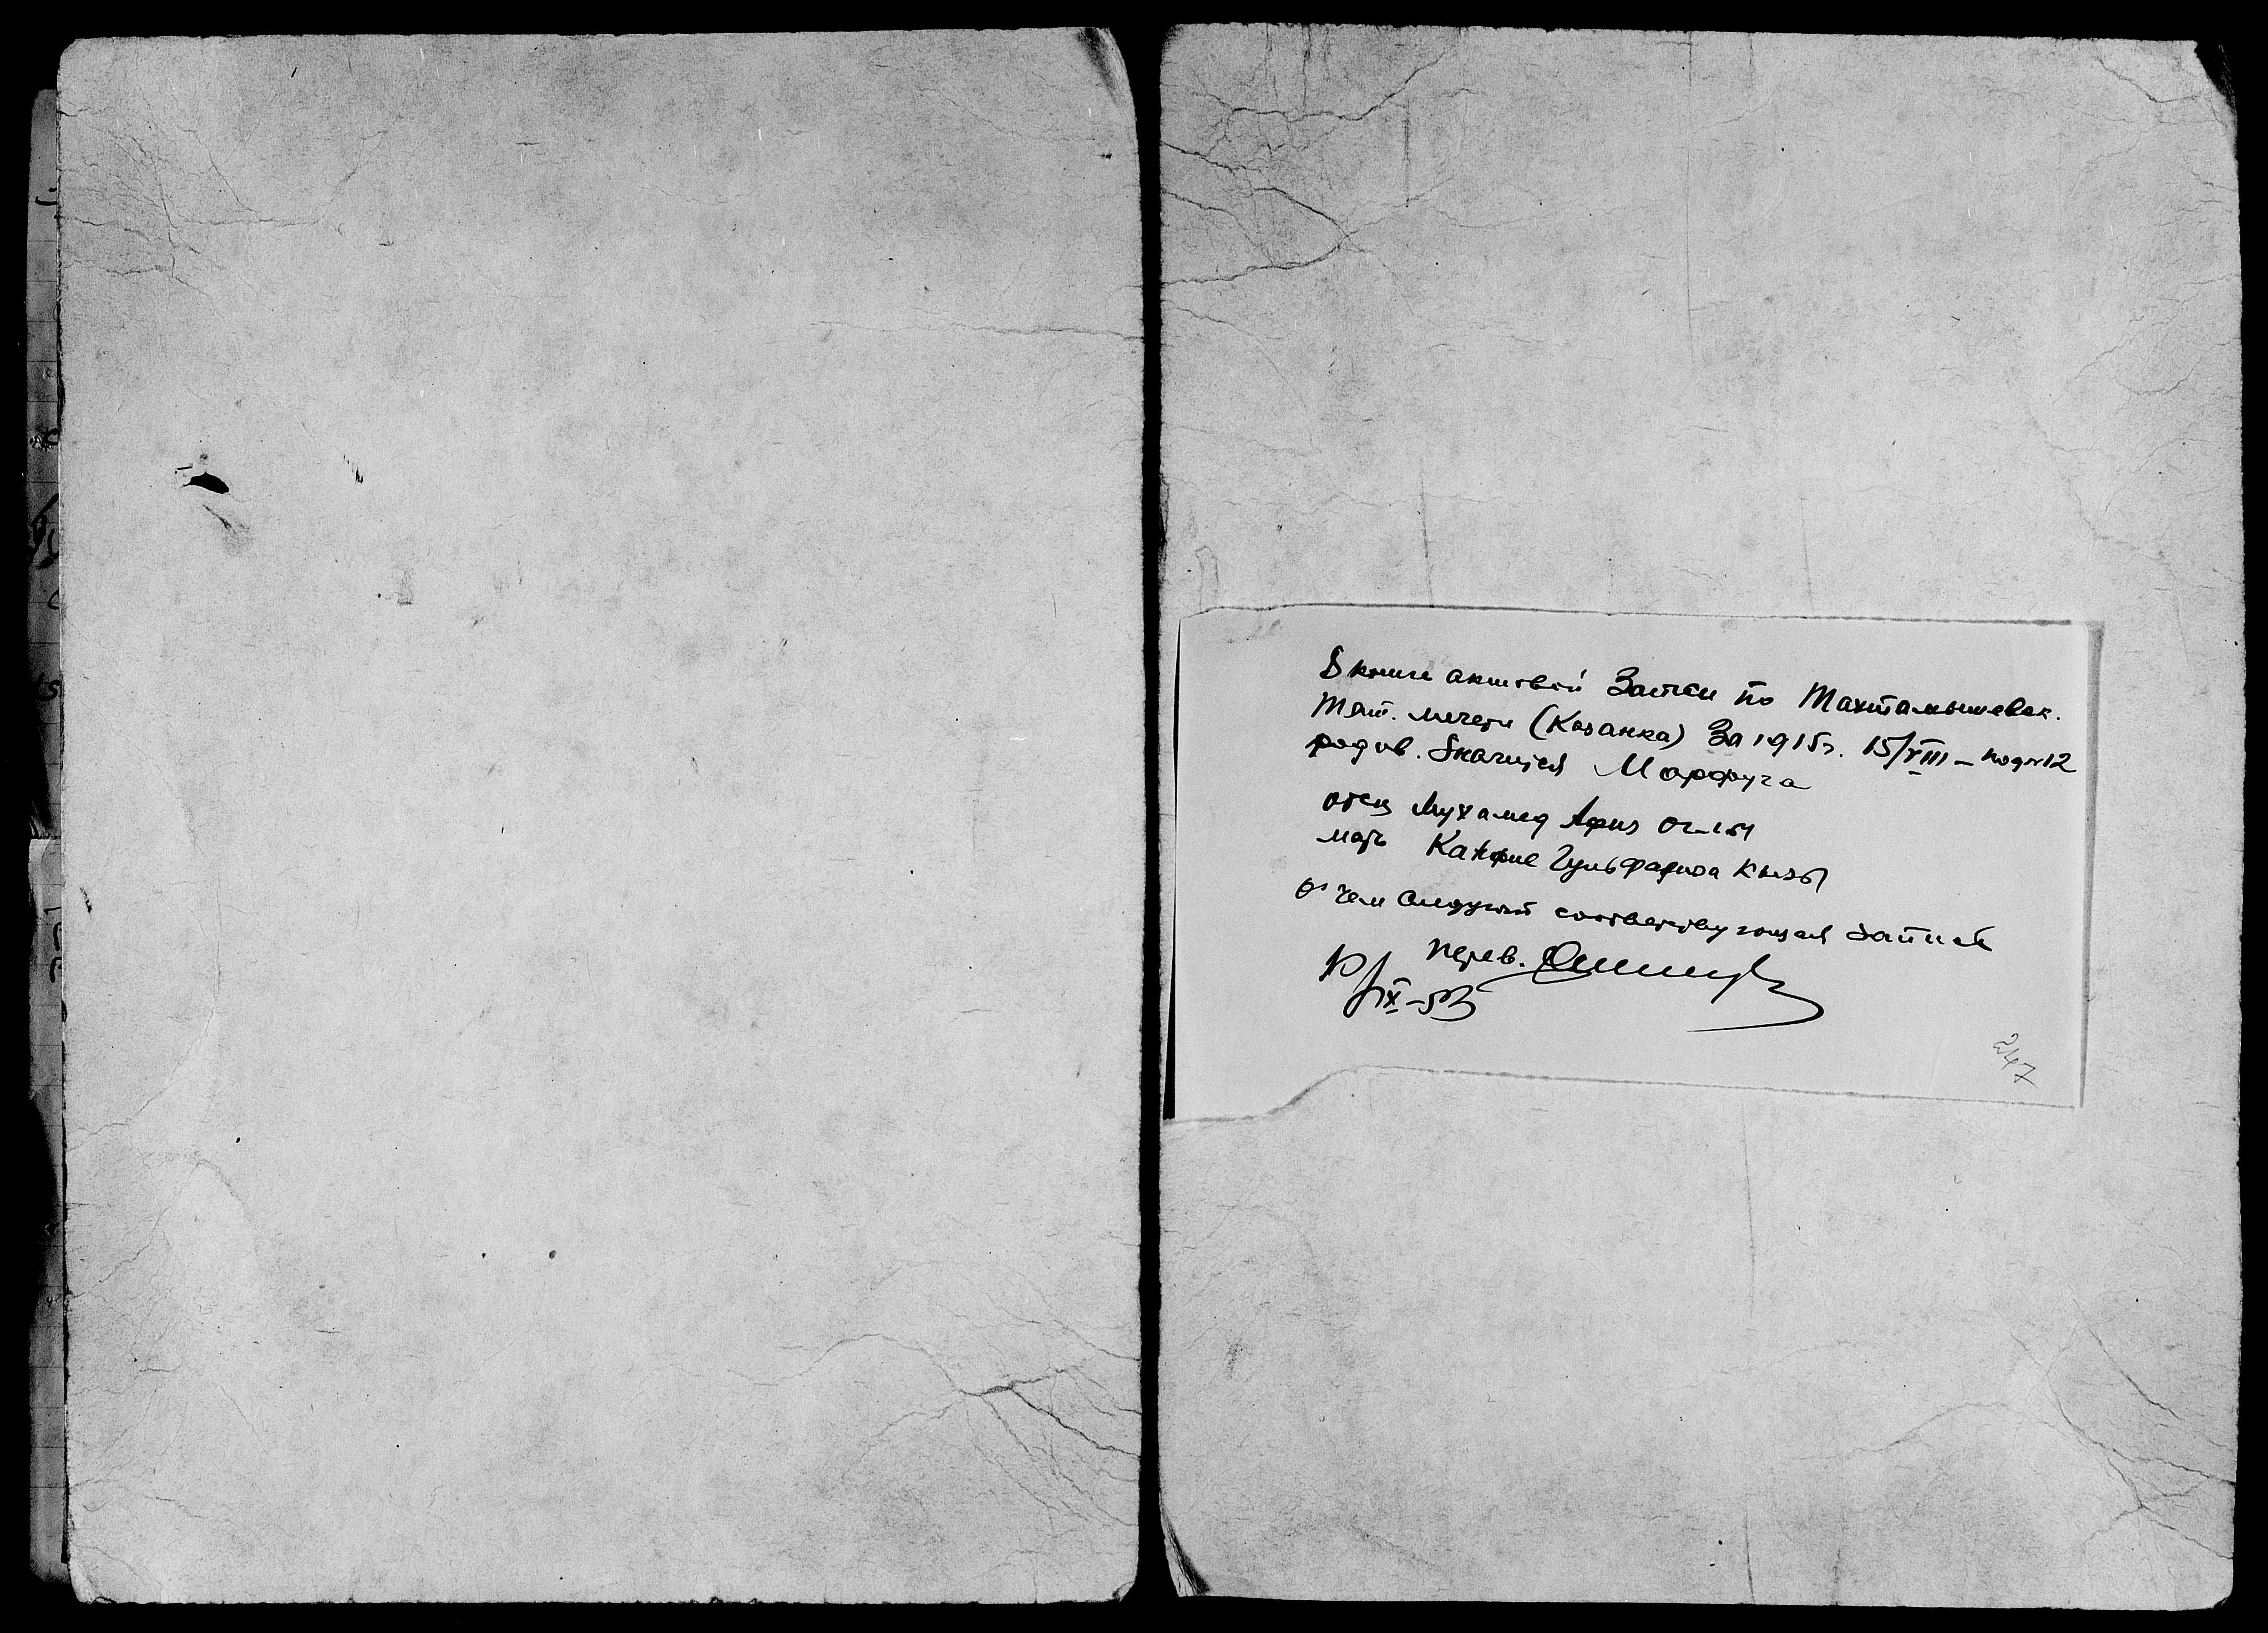 В книге актовой Записи по Тахтамышевск.
Тат. мечети (Казанка) За 1915г. 15/VIII – под №12
родив. Значится Марфуга
отец Мухамед Афиз оглы
мать Кафие Гульфариза кызы
о чем следует соответствующая запись
перев.
10/IX–53
247